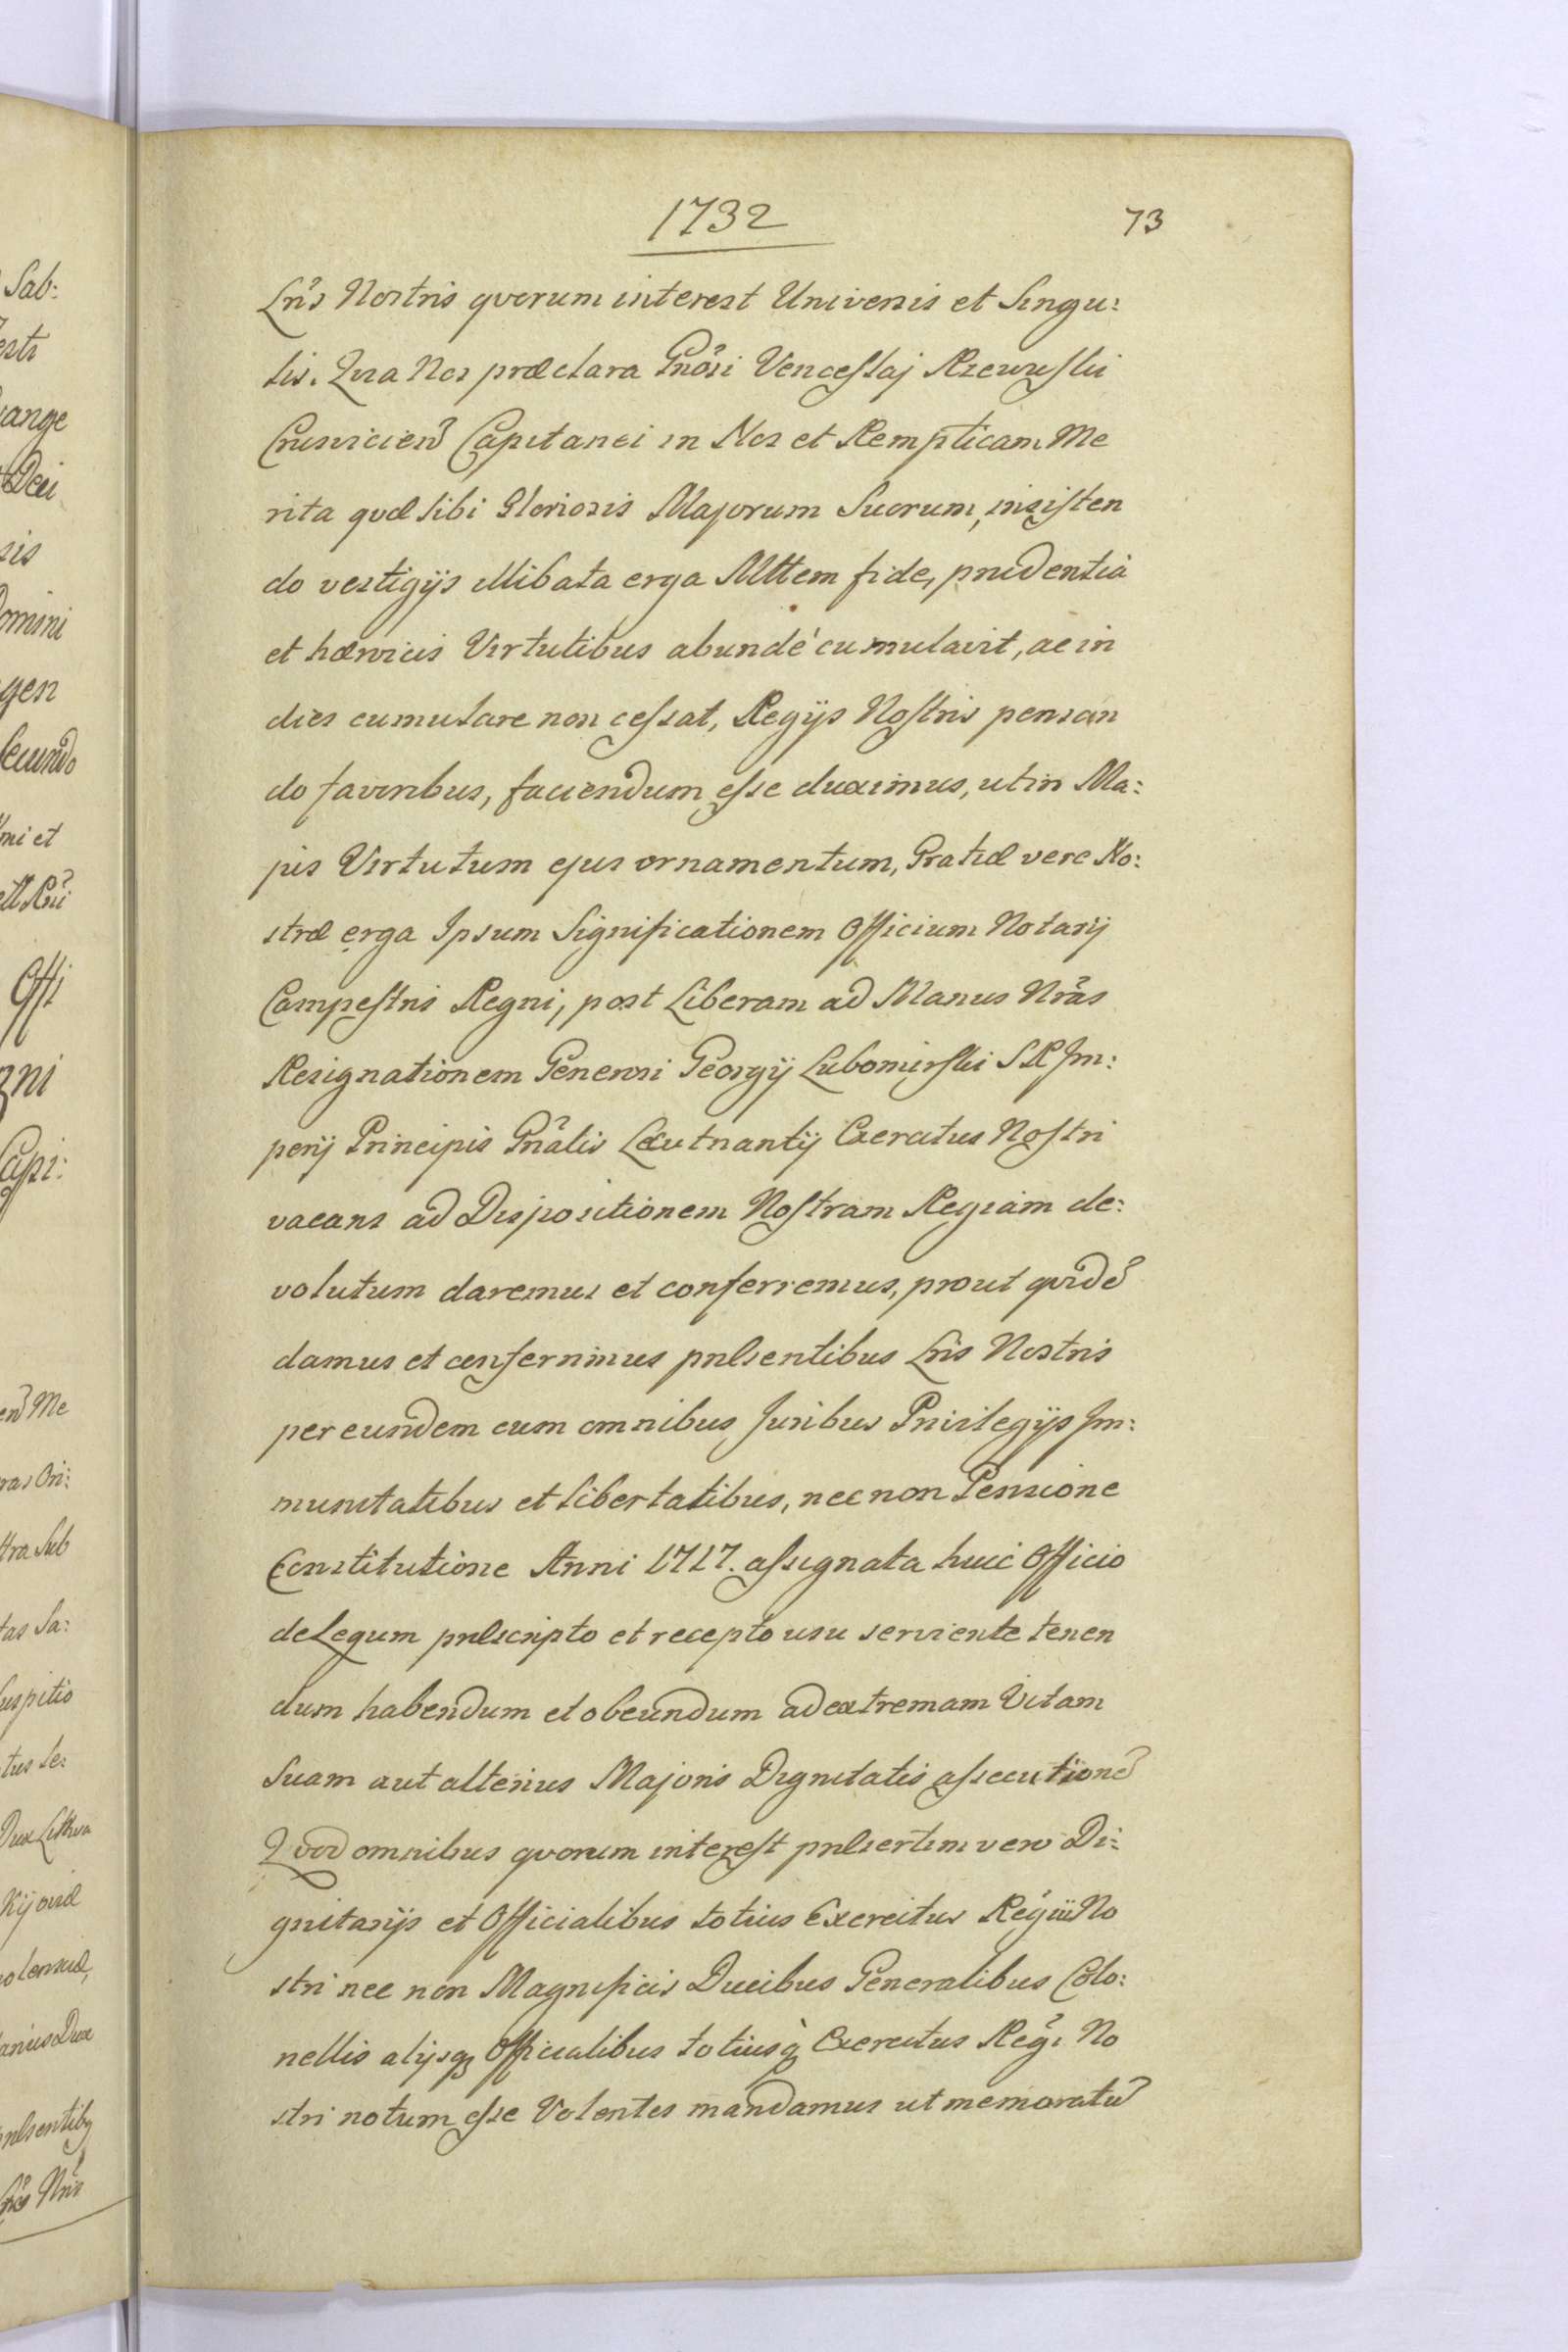 1732
73
Lris Nostris quorum interest Universis et Singu:
lis. Quia Nos præclara Gnosi Venceslaj Rzewuski
Crusvicien Capitanei in Nos et Rempblicam Me
rita quæ sibi Gloriosis Majorum Suorum, insisten
do vestigijs illibata erga Mttem fide, prudentiâ
et hæroicis Virtutibus abundé cumulavit, ac in
dies cumulare non cessat, Regijs Nostris pensan
do favoribus, faciendum esse duximus, ut in Ma:
jus Virtutum ejus ornamentum, Gratiæ vere No:
stræ erga Ipsum Significationem Officium Notarij
Campestris Regni, post Liberam ad Manus Nras
Resignationem Generosi Georgij Lubomirski S R Im:
perij Principis Gnalis Leutnantij Exercitus Nostri
vacans ad Dispositionem Nostram Regiam de:
volutum daremus et conferremus, prout quidé
damus et conferrimus pnlsentibus Lris Nostris
per eundem cum omnibus Juribus Privilegijs Im:
munitatibus et libertatibus, nec non Pensione
Constitutione Anni 1717. assignata huic Officio
de Legum pnlscripto et recepto usu serviente tenen
dum habendum et obeundum ad extremam Vitam
Suam aut alterius Majoris Dignitatis assecutione
Quod omnibus quorum interest pnlsertim vero Di:
gnitarijs et Officialibus totius Exercitus Regii No
stri nec non Magnificis Ducibus Generalibus Colo:
nellis alijsq Officialibus totiusq Exercitus Reg: No
stri notum esse Volentes mandamus ut memoratu